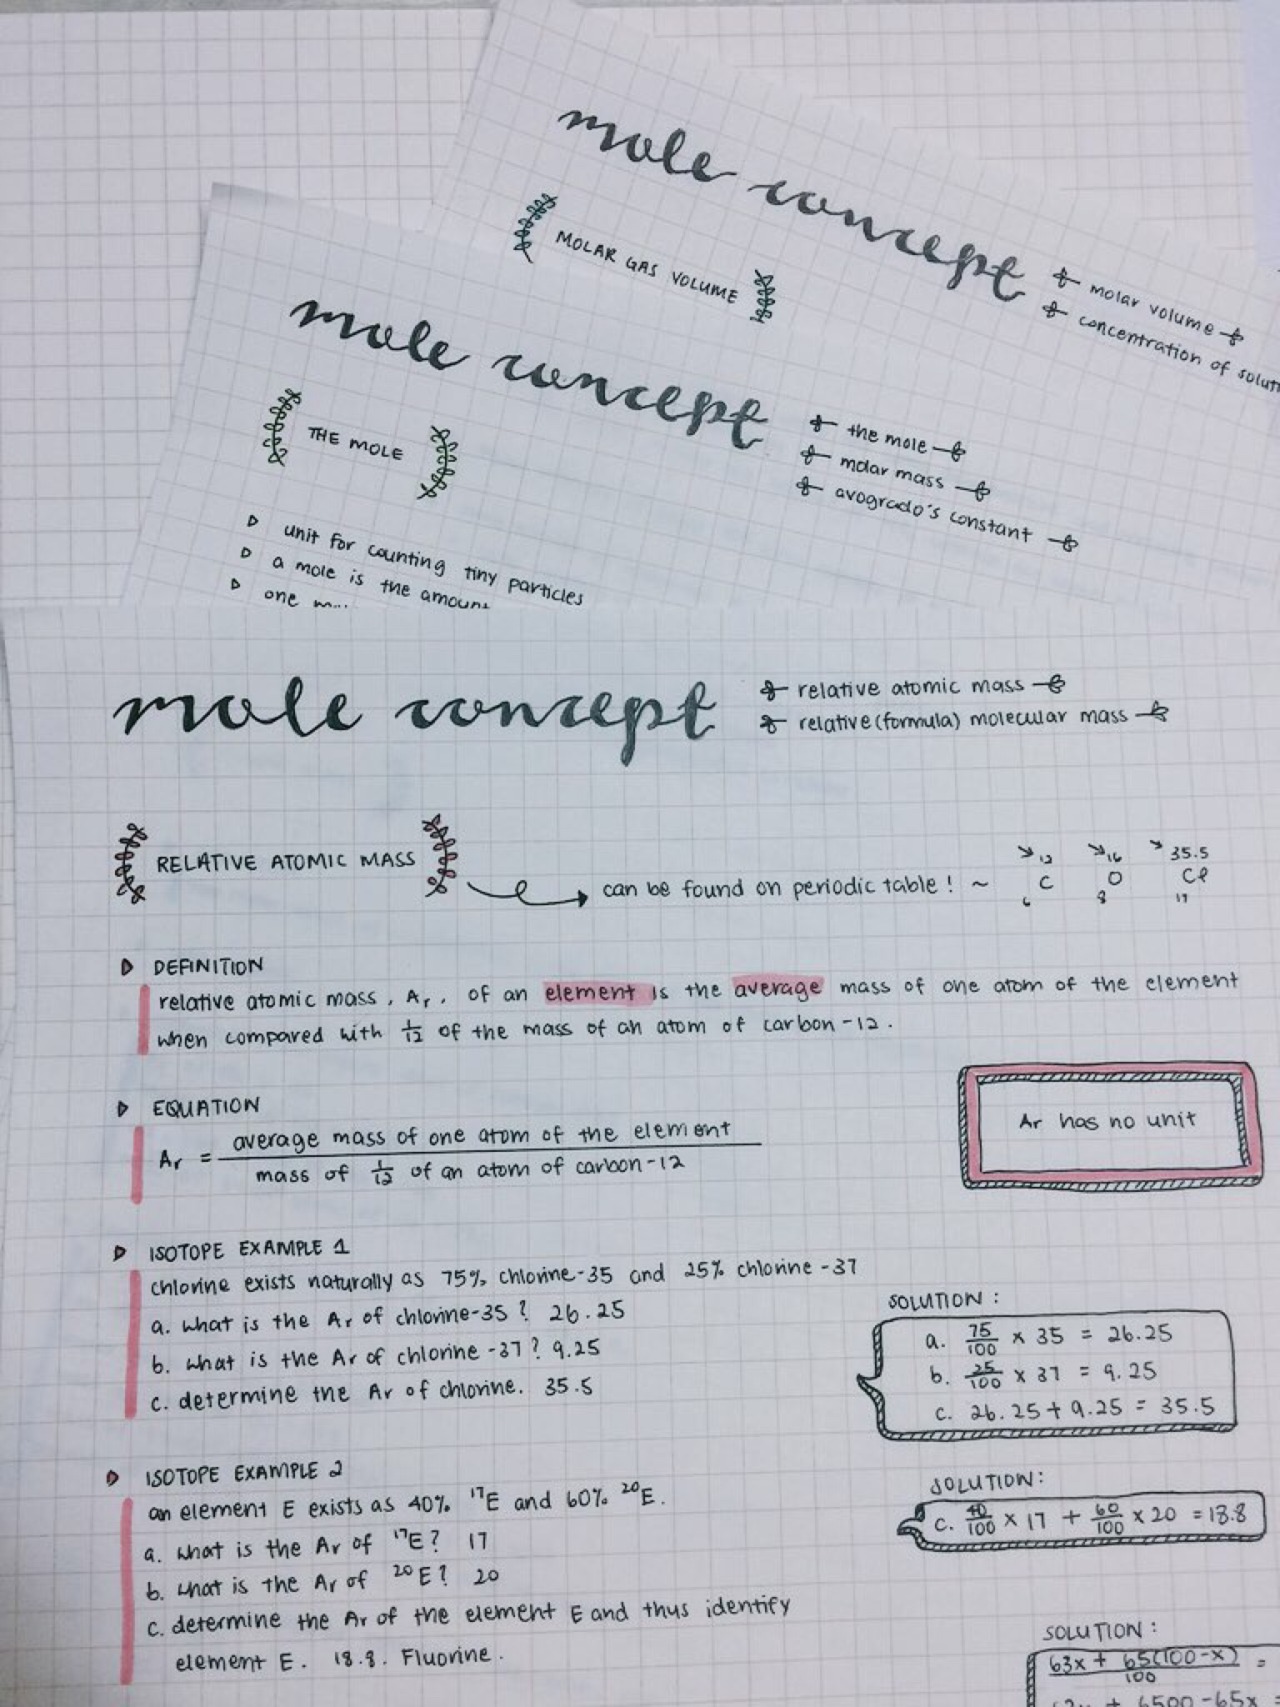 mole concept
MOLAR GAS VOLUME
molar volume
concentration of
mole concept
THE MOLE
the mole
molar mass
avogrado's constant
unit for counting tiny particles
a mole is the amount
one
mole concept
relative atomic mass
relative (formula) molecular mass
RELATIVE ATOMIC MASS
can be found on periodic table! ~
12 16 35.5
C O Cl
6 8 17
DEFINITION
relative atomic mass, Ar, of an element is the average mass of one atom of the element
when compared with 1/12 of the mass of an atom of carbon-12.
EQUATION
Ar = average mass of one atom of the element
mass of 1/12 of an atom of carbon-12
Ar has no unit
ISOTOPE EXAMPLE 1
chlorine exists naturally as 75% chlorine-35 and 25% chlorine-37
a. what is the Ar of chlorine-35? 26.25
b. what is the Ar of chlorine-37? 9.25
c. determine the Ar of chlorine. 35.5
SOLUTION:
a. 75/100 × 35 = 26.25
b. 25/100 × 37 = 9.25
c. 26.25 + 9.25 = 35.5
ISOTOPE EXAMPLE 2
an element E exists as 40% ¹⁷E and 60% ²⁰E.
a. what is the Ar of ¹⁷E? 17
b. what is the Ar of ²⁰E? 20
c. determine the Ar of the element E and thus identify
element E. 18.8. Fluorine.
SOLUTION:
c. 40/100 × 17 + 60/100 × 20 = 18.8
SOLUTION:
63x + 65(100-x)/100 =
+ 6500 - 65x